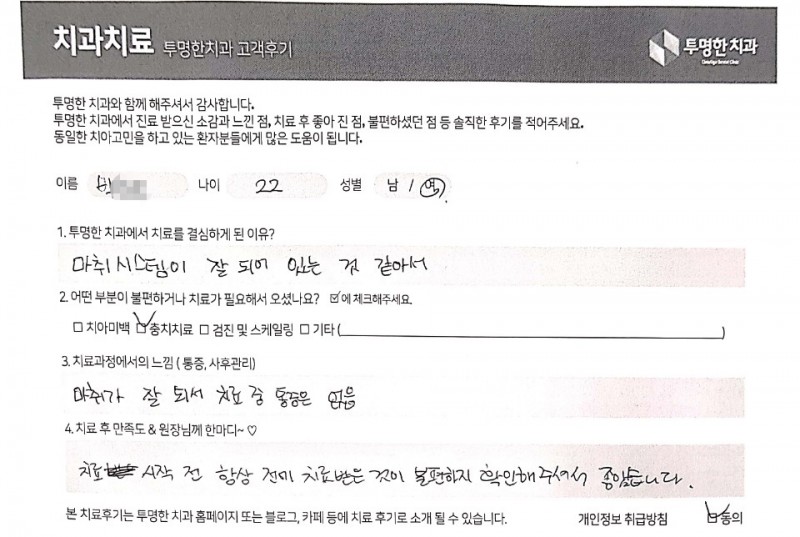 치과치료 투명한치과 고객후기
투명한치과
투명한 치과와 함께 해주셔서 감사합니다.
투명한 치과에서 진료 받으신 소감과 느낀 점, 치료 후 좋아 진 점, 불편하셨던 점 등 솔직한 후기를 적어주세요.
동일한 치아고민을 하고 있는 환자분들에게 많은 도움이 됩니다.
이름 나이 22 성별 남 / 여
1. 투명한 치과에서 치료를 결심하게 된 이유?
마취시스템이 잘 되어 있는 것 같아서
2. 어떤 부분이 불편하거나 치료가 필요해서 오셨나요? ☑에 체크해주세요.
☐ 치아미백 ☑ 충치치료 ☐ 검진 및 스케일링 ☐ 기타 ( )
3. 치료과정에서의 느낌 ( 통증, 사후관리)
마취가 잘 되서 치료 중 통증은 없음
4. 치료 후 만족도 & 원장님께 한마디~ ♡
치료 시작 전 항상 전에 치료받은 것이 불편한지 확인해주셔서 좋았습니다.
본 치료후기는 투명한 치과 홈페이지 또는 블로그, 카페 등에 치료 후기로 소개 될 수 있습니다. 개인정보 취급방침 ☑ 동의